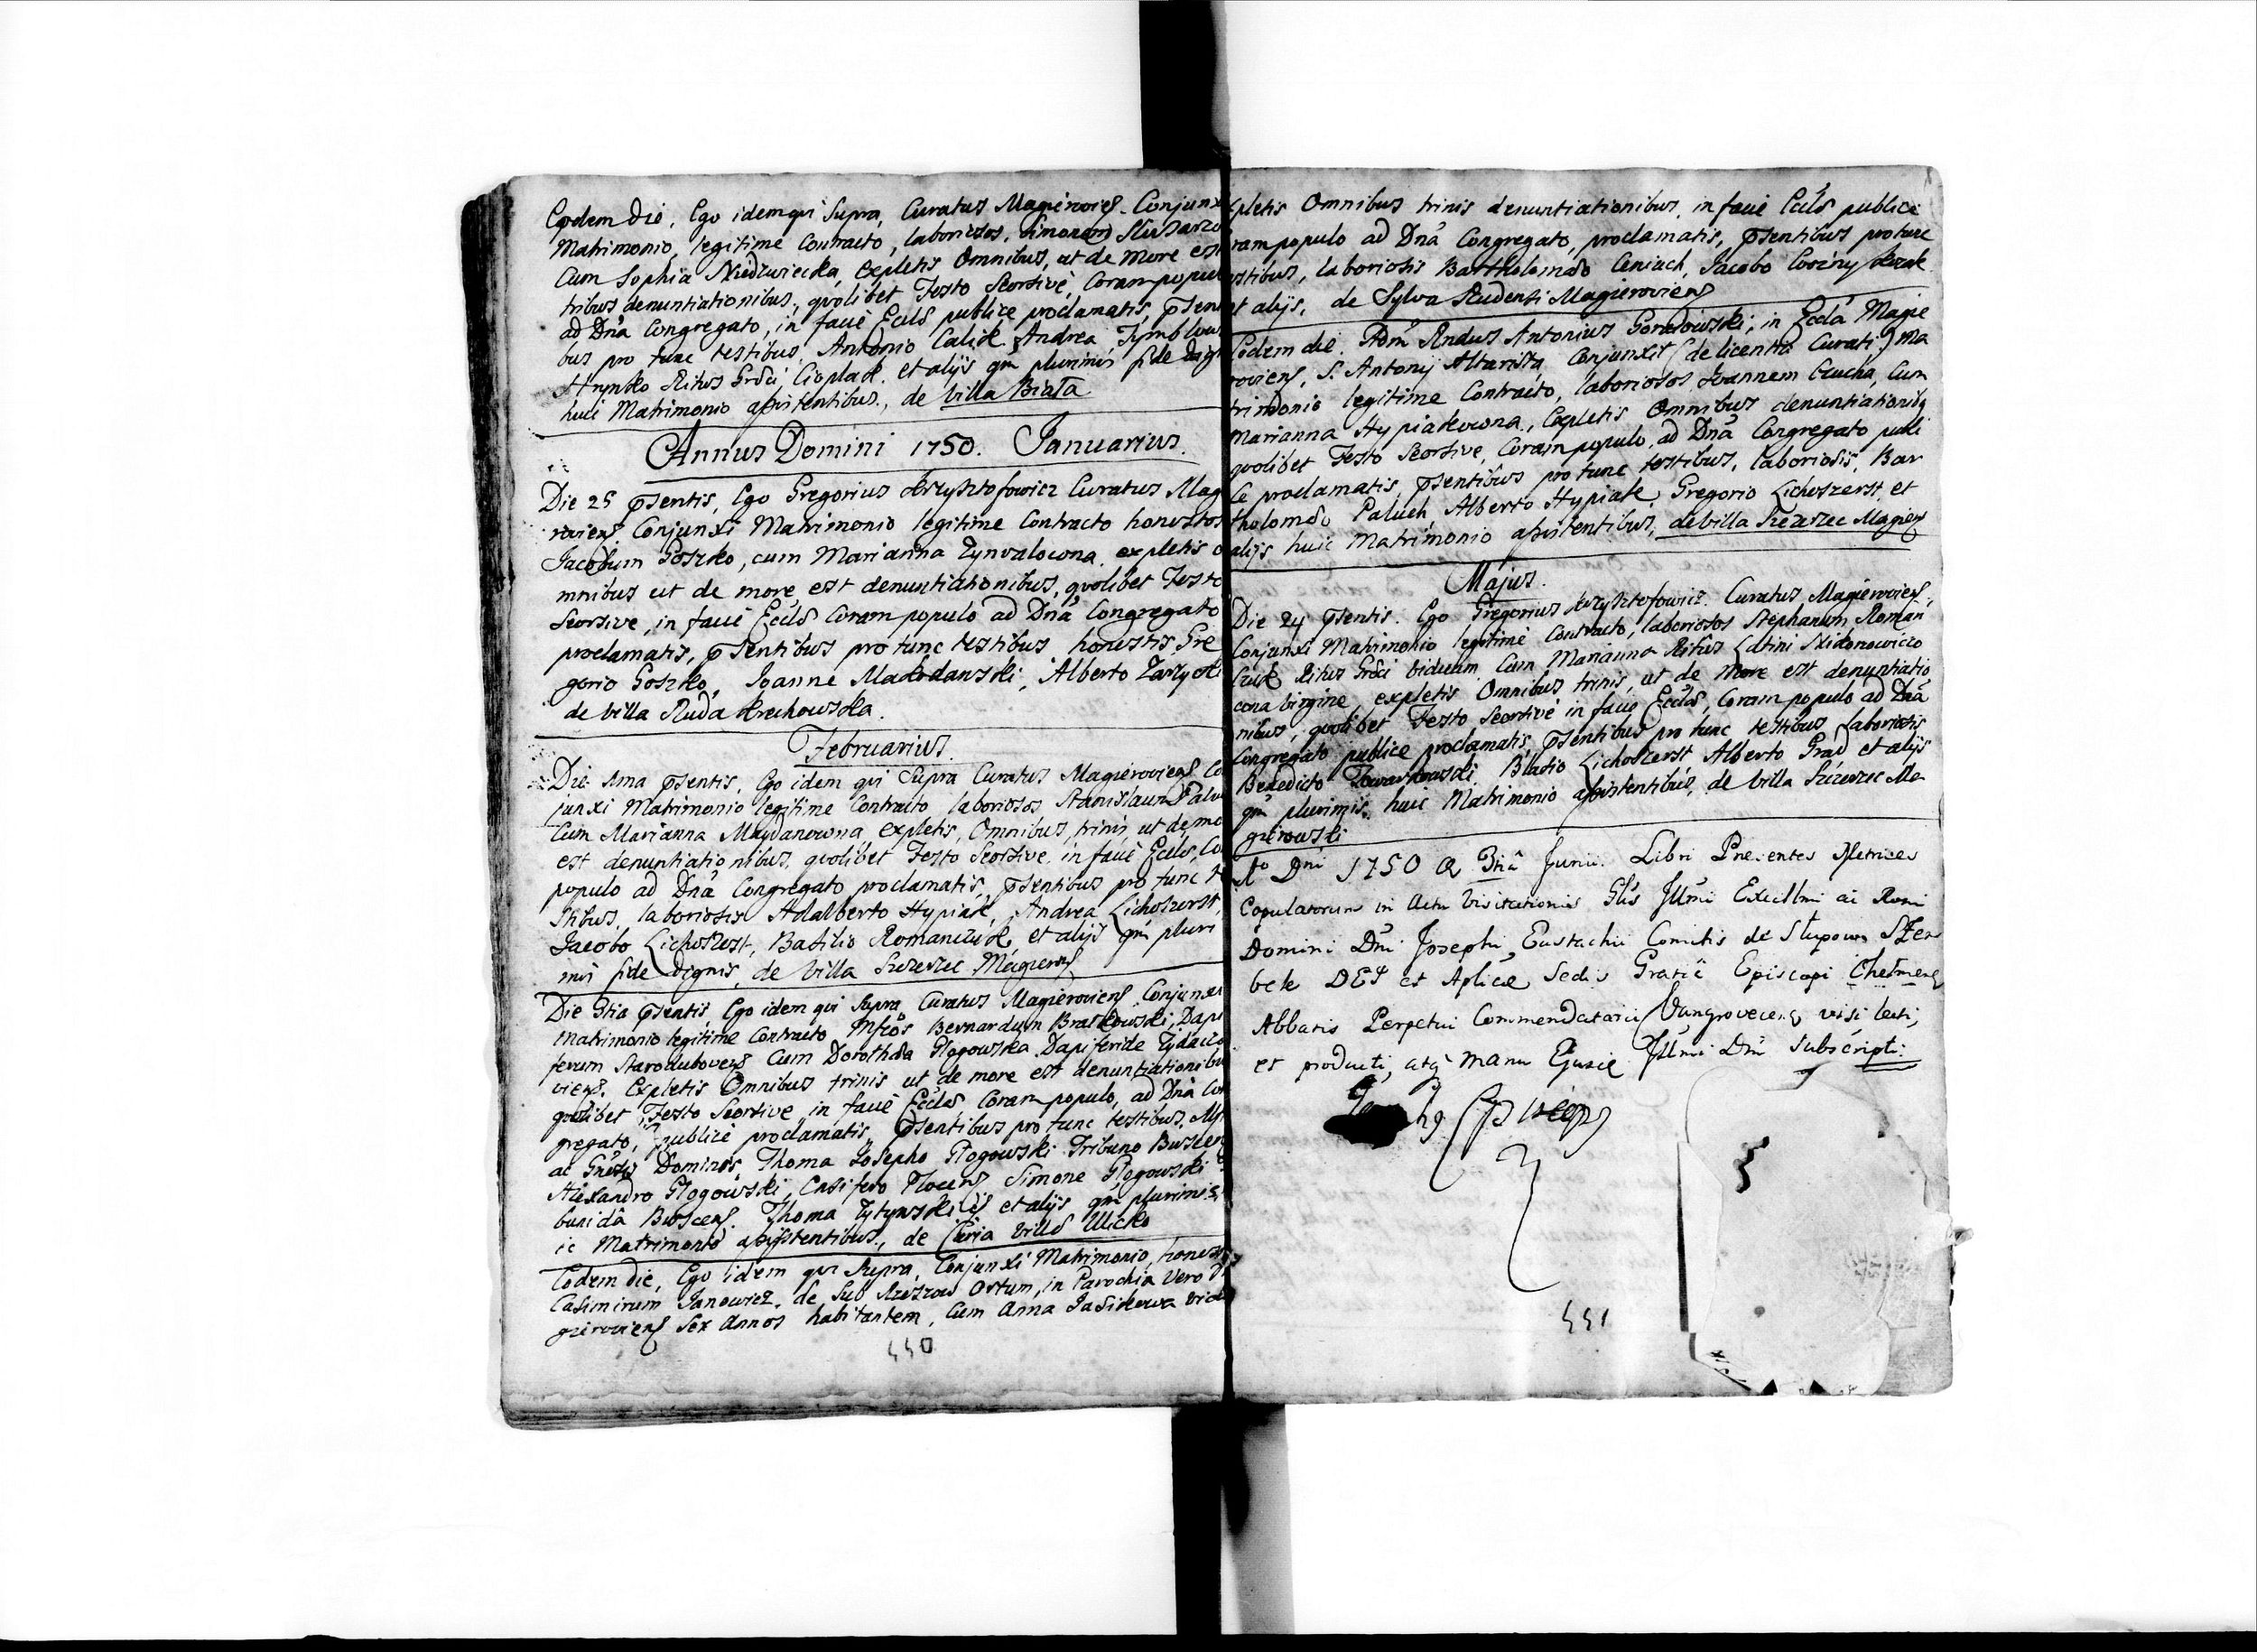 Eodem Die, Ego idem qui Supra, Curatus Magierovien. Conjunxi
Matrimonio, legitime Contracto, laboriosos, Simonem
Cum Sophia Niedzwiecka, expletis Omnibus, ut de More est
tribus denuntiationibus, qvolibet Festo Seorsive, Coram populo
ad Dnã Congregato, in faciê Eccls publice proclamatis, psen
bus pro tunc testibus, Antonio Calik Andrea
Hrynko Ritus Grći, Cioplak, et alijs qm plurimis fide dign
huic Matrimonio assistentibus, de Villa Biała
Annus Domini 1750. Januarius.
Die 25 psentis, Ego Gregorius Krzysztofowicz Curatus Mag
rovien. Conjunxi Matrimonio legitime Contracto honestos
Jacobum Goszko, cum Marianna expletis o
mnibus ut de more est denuntiationibus, qvolibet Festo
Seorsive, in faciê Eccls Coram populo ad Dnã Congregato
proclamatis, psentibus pro tunc testibus, honestis Gre
gorio Goszko, Joanne Alberto
de Villa Ruda Krechowska.
Februarius.
Die 1ma psentis, Ego idem qui Supra, Curatus Magierovien. Co
junxi Matrimonio legitime Contracto laboriosos Stanislaum Palu
Cum Marianna Maydanowna expletis, Omnibus, trinis, ut de mo
est denuntiationibus, qvolibet Festo Seorsive, in faciê Eccls, Co
populo ad Dnã Congregato proclamatis, psentibus pro tunc te
stibus, laboriosis Adalberto Hypiak, Andrea Lichoszerst,
Jacobo Lichoszerst, Basilio Romaniuk, et alijs qm pluri
mis fide dignis, de Villa Szczerzec Magierov
Die 3tia psentis Ego idem qui Supra, Curatus Magierovien. Conjunxi
Matrimonio legitime Contracto Bernardum Dapi
ferum Starodubovien. Cum Dorothea Głogowska Dapiferide
vien. Expletis Omnibus trinis ut de more est denuntiationibu
qvolibet Festo Seorsive, in faciê Eccls Coram populo, ad Dnã Con
gregato, publicè proclamatis, psentibus pro tunc testibus,
ac Dominis, Thoma Josepho Głogowski Tribuno
Alexandro Głogowski, Simone Głogowski
Thoma et alijs qm plurimis,
ic Matrimonio assistentibus, de Curia Villæ Ulicko
Eodem die, Ego idem qui Supra, Conjunxi Matrimonio, hones
Casimirum Janowicz, de Sub Rzeszow Ortum, in Parochia Vero
gierovien. Sex Annos habitantem, Cum Anna
550
xpletis Omnibus trinis denuntiationibus, in faciê Eccls publice
ram populo ad Dnã Congregato, proclamatis, psentibus pro tunc
estibus, laboriosis Bartholomæo Jacobo
et alijs, de Sylva Rudensi Magierovien.
Eodem die. Adm Rndus Antonius in Ecclã Magie
rovien. S. Antonij Altarista, Conjunxit (de licentia Curati) Ma
trimonio legitime Contracto, laboriosos Joannem Cum
Marianna Hypiakowna, Expletis Omnibus denuntiationibq
qvolibet Festo Seorsive, Coram populo, ad Dnã Congregato publi
ce proclamatis, psentibus pro tunc testibus, laboriosis, Bar
tholomæo Paluch Alberto Hypiak, Gregorio Lichoszerst, et
alijs huic Matrimonio assistentibus, de Villa Szczerzec Magierov
Majus.
Die 24 psentis. Ego Gregorius Krzysztofowicz. Curatus Magierovien.
Conjunxi Matrimonio legitime Contracto, laboriosos Stephanum Roman
czuk Ritus Grći Viduum, Cum Marianna Ritus Latini
wna Virgine, expletis Omnibus trinis, ut de More est denuntiatio
nibus, qvolibet Festo Seorsive in faciê Eccls, Coram populo ad Dnã
Congregato publice proclamatis, psentibus pro tunc testibus laboriosis
Benedicto Blasio Lichoszerst Alberto Grad et alijs
qm plurimis, huic Matrimonio assistentibus, de Villa Szczerzec Ma
gierowski
Aº Dni 1750 a 3tia Junii. Libri Presentes Metrices
Copulatorum in Actu Visitationis Glis Illmi Excellmi ac Rsmi
Domini Dni Josephi Eustachii Comitis de Słupow Szem
bek DEI et Aplicæ Sedis Gratiâ Episcopi Chełmen
Abbatis Perpetui Commendatarii Vangrovecen. visi lecti,
et producti, atq manu Ejusdē Illmi Dni Subscripti.
551